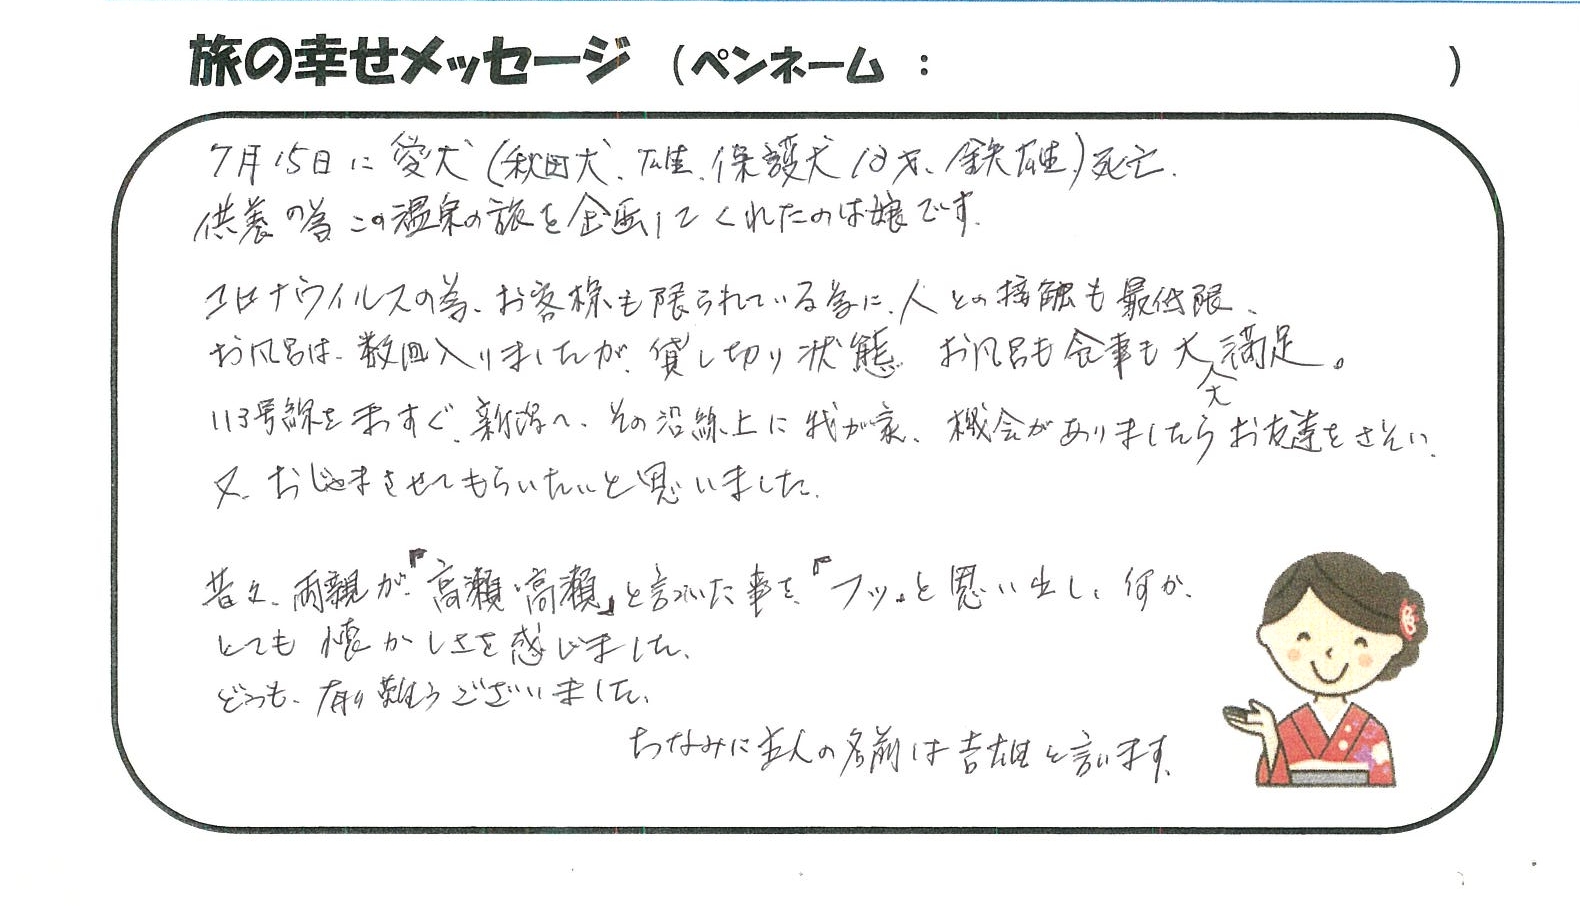 旅の幸せメッセージ (ペンネーム : )
7月15日に愛犬(秋田犬、雄、保護犬、12才、鉄雄)死亡.
供養の為この温泉の旅を企画してくれたのは娘です.
コロナウイルスの為、お客様も限られている為に、人との接触も最低限、
お風呂は、数回入りましたが、貸し切り状態 お風呂も食事も大大満足。
113号線をまっすぐ、新潟へ、その沿線上に我が家、機会がありましたらお友達をさそい、
又、おじゃまさせてもらいたいと思いました.
昔々、両親が『高瀬・高瀬』と言っていた事を、『フッ』と思い出し、何か、
とても懐かしさを感じました、
どうも、有り難うございました、
ちなみに主人の名前は吉雄と言います.